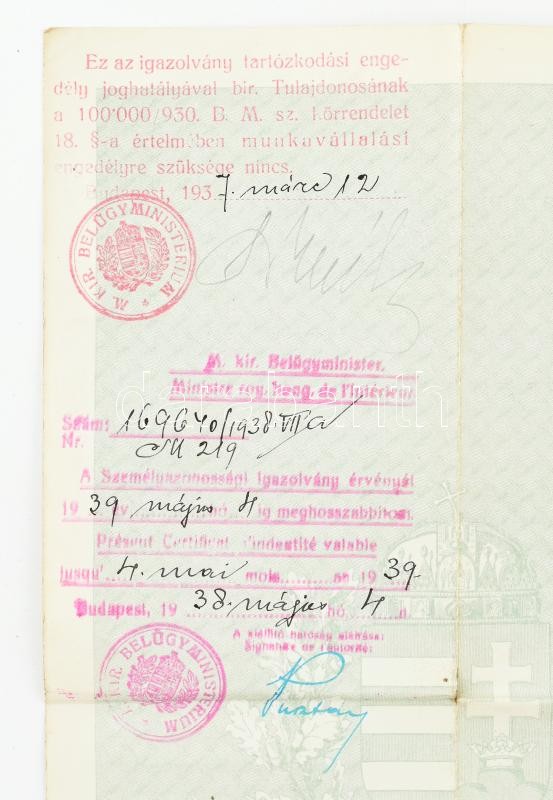 Ez az igazolvány tartózkodási enge-
dély joghatályával bir. Tulajdonosának
a 100·000/930. B. M. sz. körrendelet
18. §-a értelmében munkavállalási
engedélyre szüksége nincs.
Budapest, 1937. márc 12
M. KIR. BELÜGYMINISTERIUM
M. kir. Belügyminister.
Ministre roy. hong. de l'Intérieur
Szám: 169640/1938. VII a
Nr. 219
A Személyazonossági Igazolvány érvényét
1939 év május hó 4 ig meghosszabbitom.
Présent Certificat d'identité valable
jusqu' 4. mai mois an 1939.
Budapest, 1938. május hó 4 n
A kiállitó hatóság aláirása:
Signature de l'autorité:
M. KIR. BELÜGYMINISTERIUM